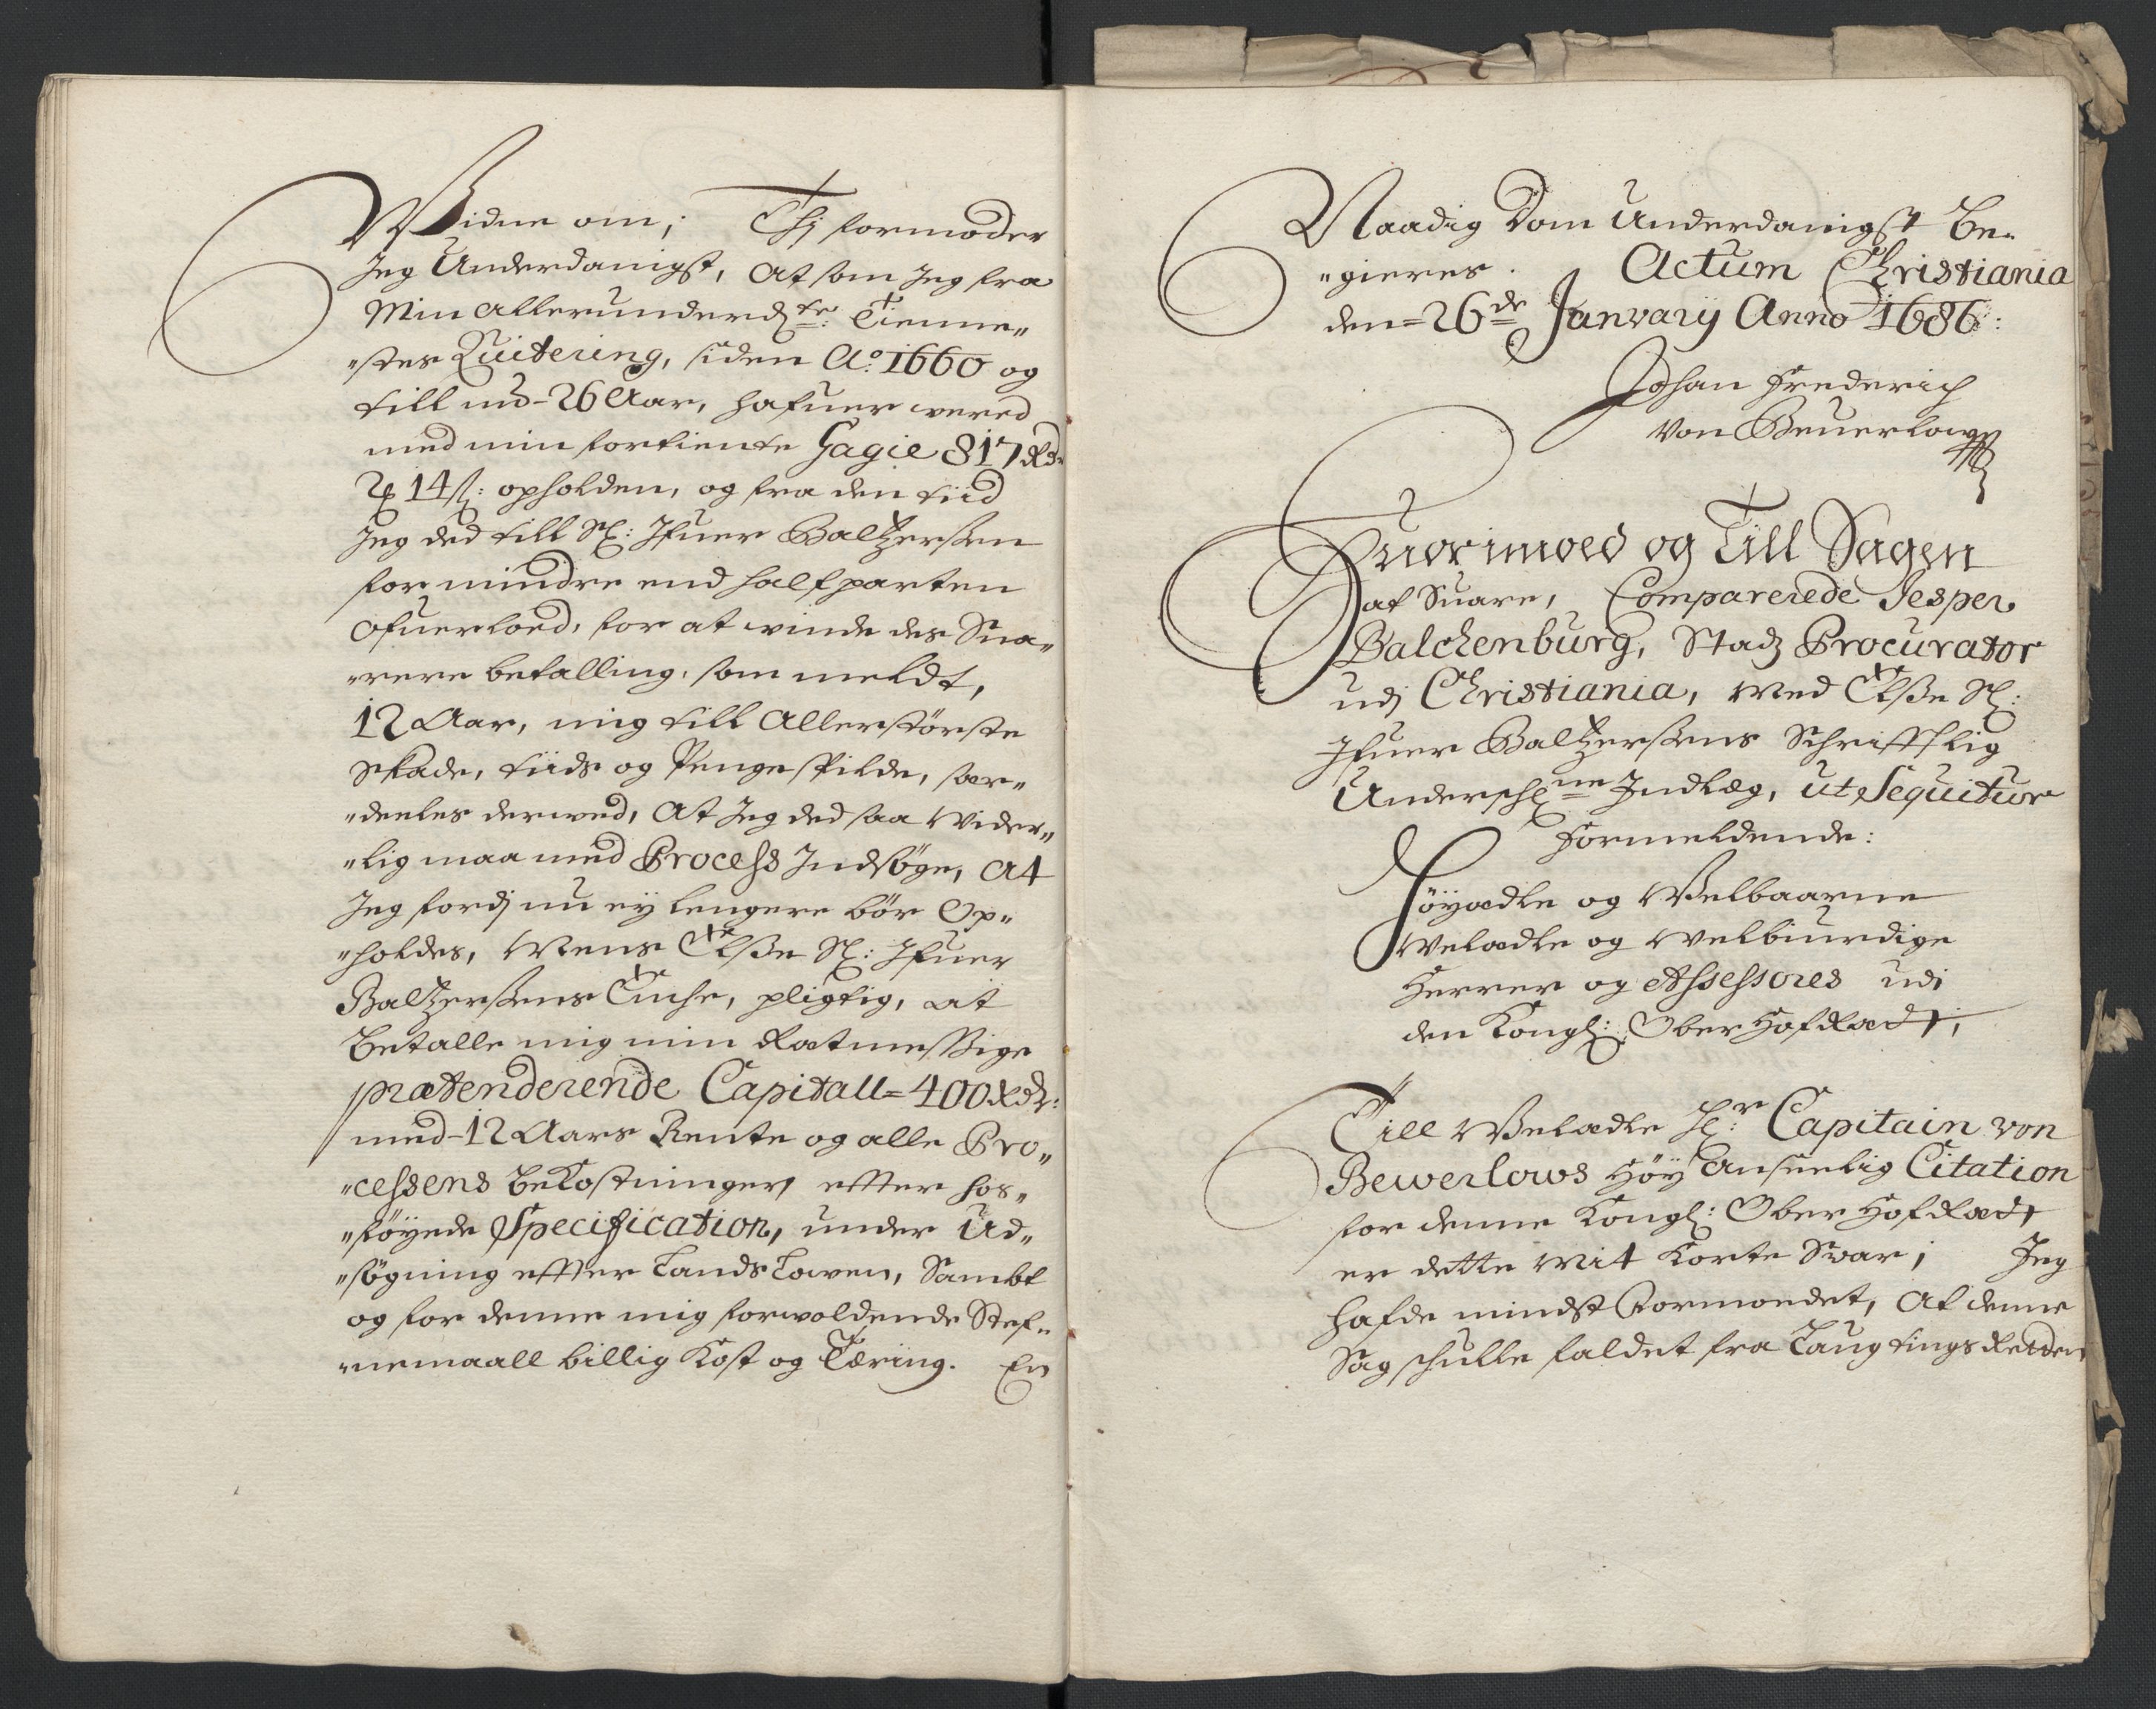 Widne om; Thj formoder
Jeg Underdanigst, at som Jeg fra
Min Allerunderd:te: Tienne„
„stes Quitering, siden Ao: 1660 og
till nu - 26 Aar, hafuer wered
med min fortiente Gagie 817 Rdr
2 ₰ 14 ß: opholden, og fra den tiid
Jeg ded till Sl: Ifuer Baltzersen
for mindre end halfparten
ofuerloed, for at winde des Sna„
„rere betalling, som meldt,
12 Aar, mig till Allerstörste
Skade, tiids og Penge spilde, sær„
„deeles derwed, At Jeg ded saa Wider„
„lig maa med Process Indsöge, At
Jeg fordj nu ey lengere bör Op„
„holdes, Mens Elsse Sl: Ifuer
Baltzersens Encke, pligtig, at
Betalle mig min Retmessige
prætenderende Capitall = 400 Rdr:
med - 12 Aars Rente og alle Pro„
„cessens Bekostninger, efter hos„
„föyede Specification, under Ud„
„sögning effter Lands Lowen, Sambt
og for denne mig forwoldende Stef„
„nemaall billig Kost og Tæring. En
Naadig Dom Underdanigst Be„
„gieres. Actum Christiania
den = 26de Janvary Anno 1686:
Johan Frederich
Von Beuerlow
Huorimoed og Till Sagen
at Suare, Comparerede Jesper
Balchenburg, Stadz Procurator
udj Christiania, Med Elsse Sl:
Ifuer Baltzersens Schrifftlig
Underschr:ne Indlæg, ut Sequitur
Formeldende:
Höyædle og Welbaarne
Welædle og Welbiurdige
Herrer og Assessores udi
den Kongl: Ober Hof Ræt;
Till Welædle Hr: Capitain von
Bewerlows Höy Anseelig Citation
for denne Kongl: Ober Hof Ræt
er dette Mit Korte Svar; Jeg
hafde mindst Formoedet, At denne
Sag schulle faldet fra Laugtings Retten